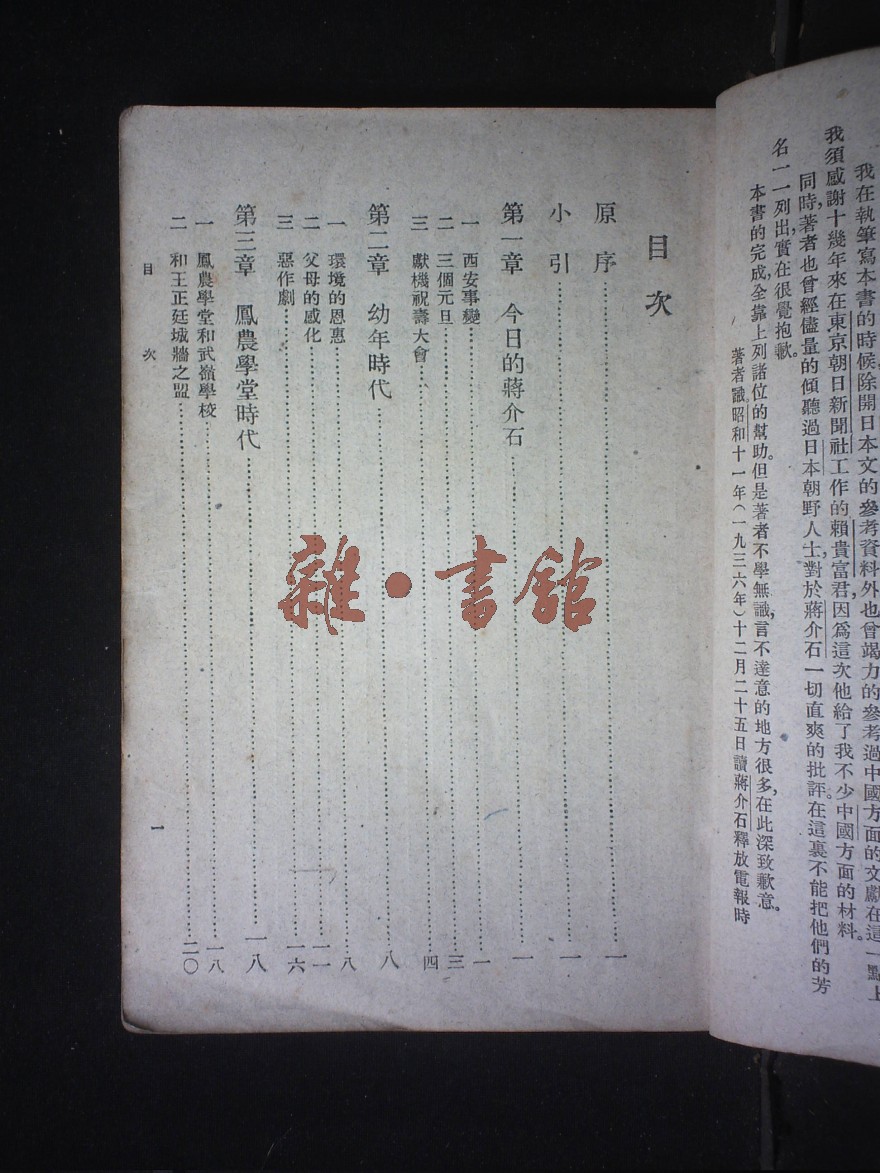 我在執筆寫本書的時候,除開日本文的參考資料外,也曾竭力的參考過中國方面的文獻在這一點上
我須感謝十幾年來在東京朝日新聞社工作的賴貴富君,因爲這次他給了我不少中國方面的材料。
同時,著者也曾經儘量的傾聽過日本朝野人士,對於蔣介石一切直爽的批評。在這裏不能把他們的芳
名一一列出,實在很覺抱歉。
本書的完成,全靠上列諸位的幫助。但是著者不學無識,言不達意的地方很多,在此深致歉意。
著者識。昭和十一年(一九三六年)十二月二十五日讀蔣介石釋放電報時
目次
原序……一
小引……一
第一章 今日的蔣介石……一
一 西安事變……一
二 三個元旦……三
三 獻機祝壽大會……四
第二章 幼年時代……八
一 環境的恩惠……八
二 父母的感化……一一
三 惡作劇……一六
第三章 鳳農學堂時代……一八
一 鳳農學堂和武嶺學校……一八
二 和王正廷城牆之盟……二〇
目次
一
雜·書館